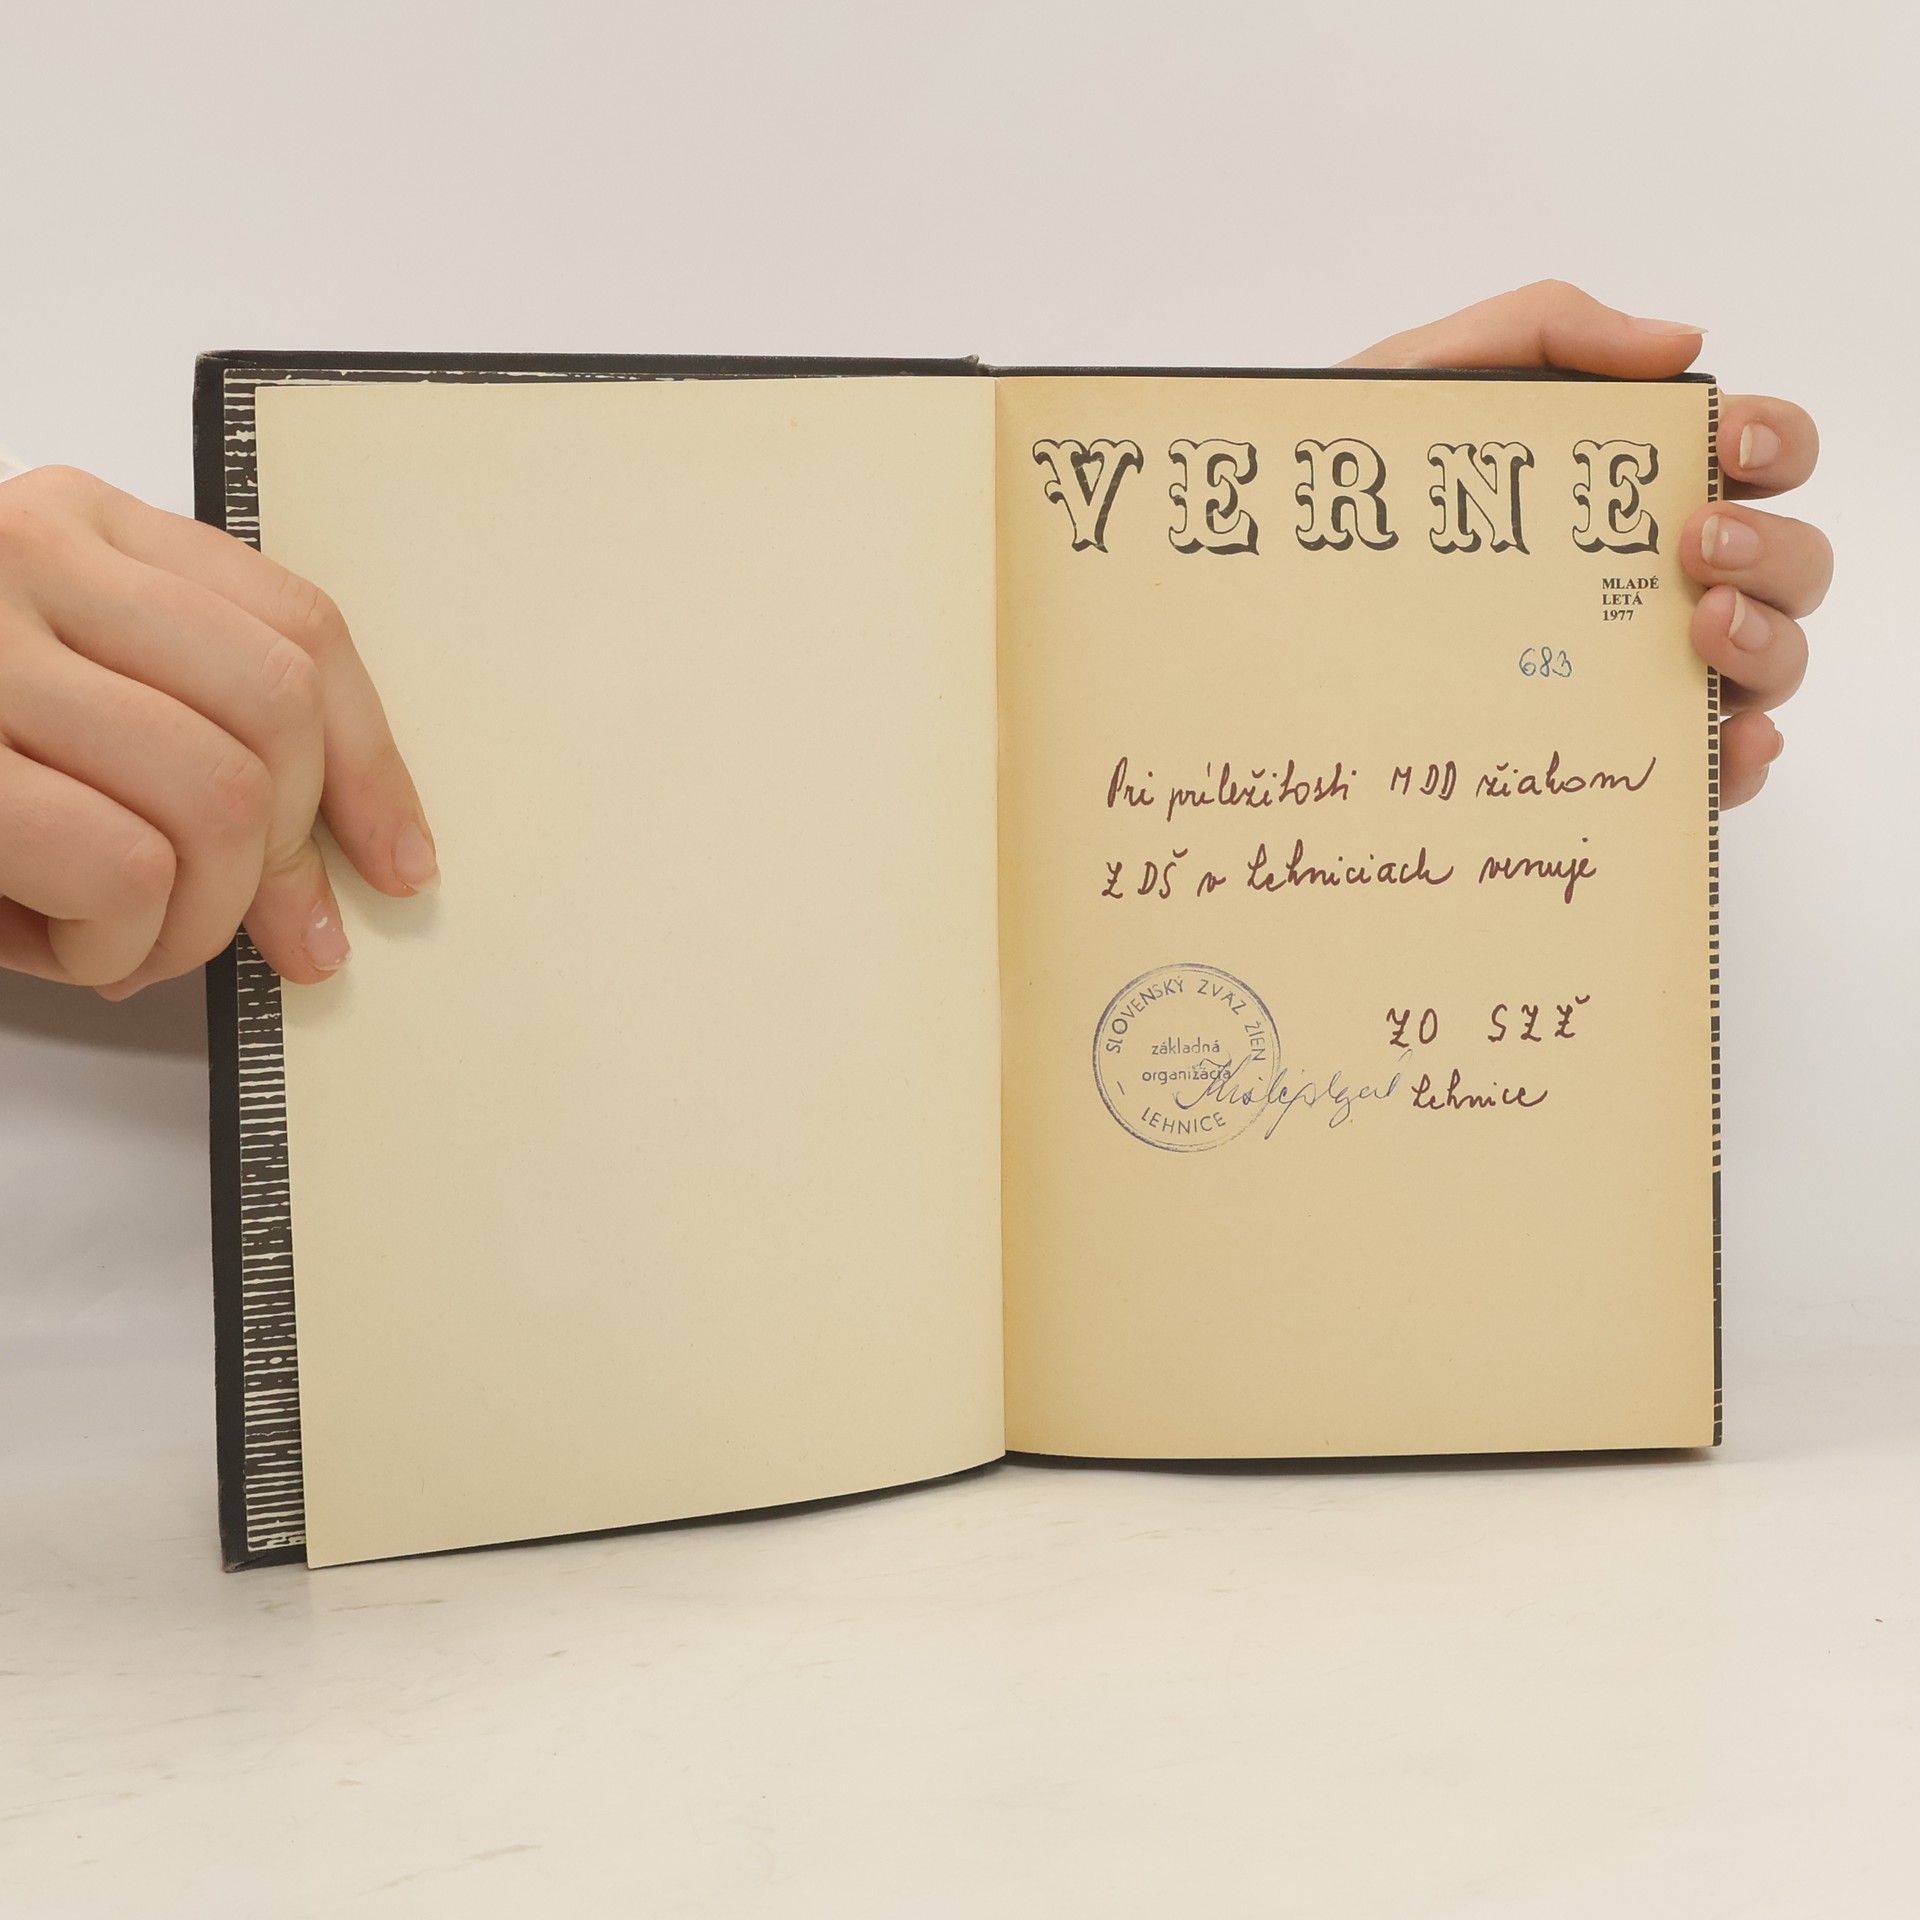 VERNE
MLADÉ
LETÁ
1977
683
Pri príležitosti MDD žiakom
ZDŠ v Lehniciach venuje
SLOVENSKÝ ZVÄZ ŽIEN
základná
organizácia
LEHNICE
ZO SZŽ
Lehnice